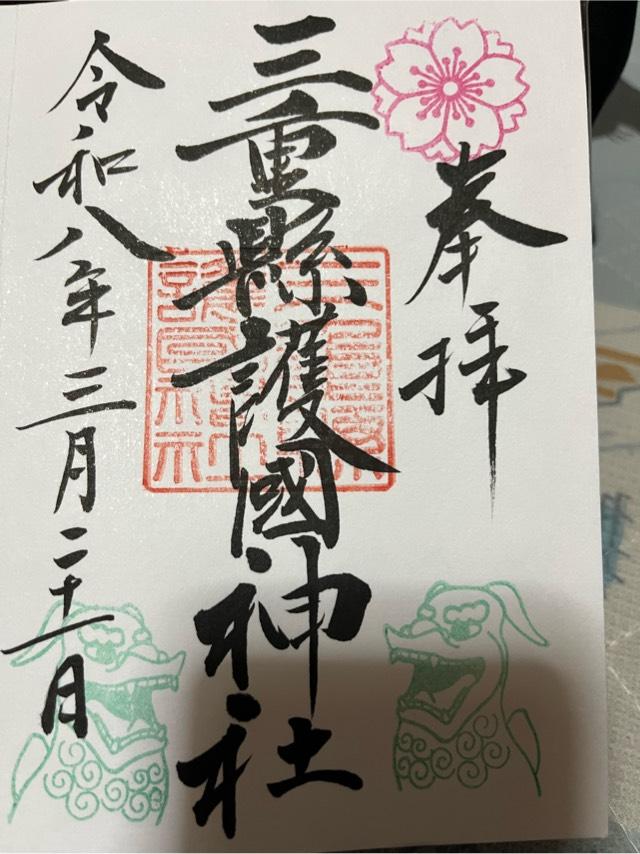 奉拝
三重縣護國神社
令和八年三月二十一日